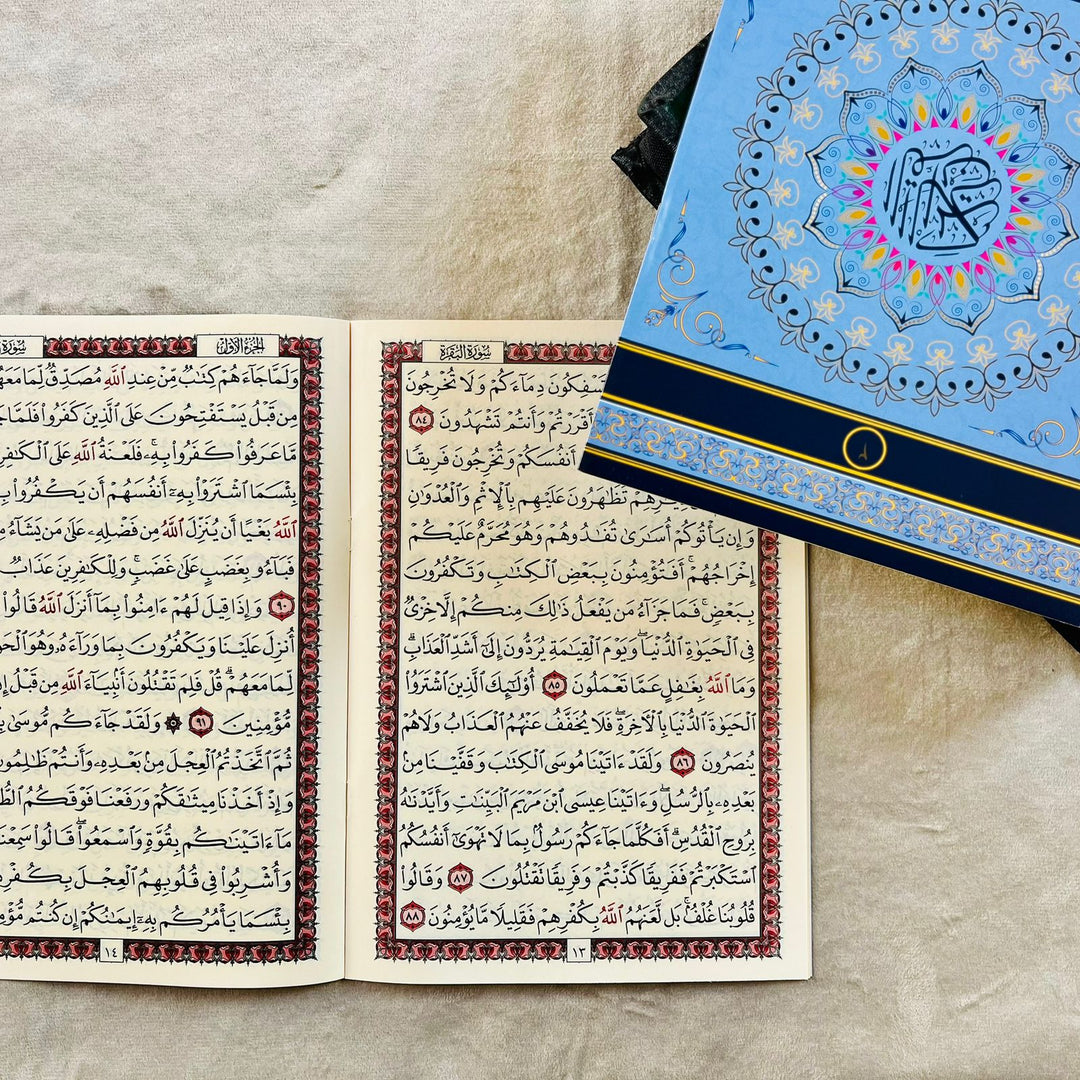 القرآن الكريم
سُورَةُ البَقَرَةِ
دِمَآءَكُمْ وَلَا تُخْرِجُونَ
أَقْرَرْتُمْ وَأَنتُمْ تَشْهَدُونَ ٨٤
أَنفُسَكُمْ وَتُخْرِجُونَ فَرِيقًا
تَظَٰهَرُونَ عَلَيْهِم بِٱلْإِثْمِ وَٱلْعُدْوَٰنِ
وَإِن يَأْتُوكُمْ أُسَٰرَىٰ تُفَٰدُوهُمْ وَهُوَ مُحَرَّمٌ عَلَيْكُمْ
إِخْرَاجُهُمْ ۚ أَفَتُؤْمِنُونَ بِبَعْضِ ٱلْكِتَٰبِ وَتَكْفُرُونَ
بِبَعْضٍ ۚ فَمَا جَزَآءُ مَن يَفْعَلُ ذَٰلِكَ مِنكُمْ إِلَّا خِزْيٌ
فِى ٱلْحَيَوٰةِ ٱلدُّنْيَا ۖ وَيَوْمَ ٱلْقِيَٰمَةِ يُرَدُّونَ إِلَىٰٓ أَشَدِّ ٱلْعَذَابِ ۗ
وَمَا ٱللَّهُ بِغَٰفِلٍ عَمَّا تَعْمَلُونَ ٨٥ أُو۟لَٰٓئِكَ ٱلَّذِينَ ٱشْتَرَوُا۟
ٱلْحَيَوٰةَ ٱلدُّنْيَا بِٱلْءَاخِرَةِ ۖ فَلَا يُخَفَّفُ عَنْهُمُ ٱلْعَذَابُ وَلَا هُمْ
يُنصَرُونَ ٨٦ وَلَقَدْ ءَاتَيْنَا مُوسَى ٱلْكِتَٰبَ وَقَفَّيْنَا مِنۢ
بَعْدِهِۦ بِٱلرُّسُلِ ۖ وَءَاتَيْنَا عِيسَى ٱبْنَ مَرْيَمَ ٱلْبَيِّنَٰتِ وَأَيَّدْنَٰهُ
بِرُوحِ ٱلْقُدُسِ ۗ أَفَكُلَّمَا جَآءَكُمْ رَسُولٌۢ بِمَا لَا تَهْوَىٰٓ أَنفُسُكُمُ
ٱسْتَكْبَرْتُمْ فَفَرِيقًا كَذَّبْتُمْ وَفَرِيقًا تَقْتُلُونَ ٨٧ وَقَالُوا۟
قُلُوبُنَا غُلْفٌۢ ۚ بَل لَّعَنَهُمُ ٱللَّهُ بِكُفْرِهِمْ فَقَلِيلًا مَّا يُؤْمِنُونَ ٨٨
١٣
الجُزْءُ الأَوَّلُ سُورَةُ
وَلَمَّا جَآءَهُمْ كِتَٰبٌ مِّنْ عِندِ ٱللَّهِ مُصَدِّقٌ لِّمَا
مِن قَبْلُ يَسْتَفْتِحُونَ عَلَى ٱلَّذِينَ كَفَرُوا۟
مَّا عَرَفُوا۟ كَفَرُوا۟ بِهِۦ ۚ فَلَعْنَةُ ٱللَّهِ عَلَى
بِئْسَمَا ٱشْتَرَوْا۟ بِهِۦٓ أَنفُسَهُمْ أَن يَكْفُرُوا۟
ٱللَّهُ بَغْيًا أَن يُنَزِّلَ ٱللَّهُ مِن فَضْلِهِۦ عَلَىٰ مَن يَشَآءُ
فَبَآءُو بِغَضَبٍ عَلَىٰ غَضَبٍ ۚ وَلِلْكَٰفِرِينَ عَذَابٌ
٩٠ وَإِذَا قِيلَ لَهُمْ ءَامِنُوا۟ بِمَآ أَنزَلَ ٱللَّهُ قَالُوا۟
أُنزِلَ عَلَيْنَا وَيَكْفُرُونَ بِمَا وَرَآءَهُۥ وَهُوَ
لِّمَا مَعَهُمْ ۗ قُلْ فَلِمَ تَقْتُلُونَ أَنۢبِيَآءَ ٱللَّهِ مِن قَبْلُ
مُّؤْمِنِينَ ٩١ وَلَقَدْ جَآءَكُم مُّوسَىٰ
ثُمَّ ٱتَّخَذْتُمُ ٱلْعِجْلَ مِنۢ بَعْدِهِۦ وَأَنتُمْ ظَٰلِمُونَ
وَإِذْ أَخَذْنَا مِيثَٰقَكُمْ وَرَفَعْنَا فَوْقَكُمُ
مَآ ءَاتَيْنَٰكُم بِقُوَّةٍ وَٱسْمَعُوا۟ ۖ قَالُوا۟
وَأُشْرِبُوا۟ فِى قُلُوبِهِمُ ٱلْعِجْلَ
بِئْسَمَا يَأْمُرُكُم بِهِۦٓ إِيمَٰنُكُمْ إِن كُنتُم
١٤